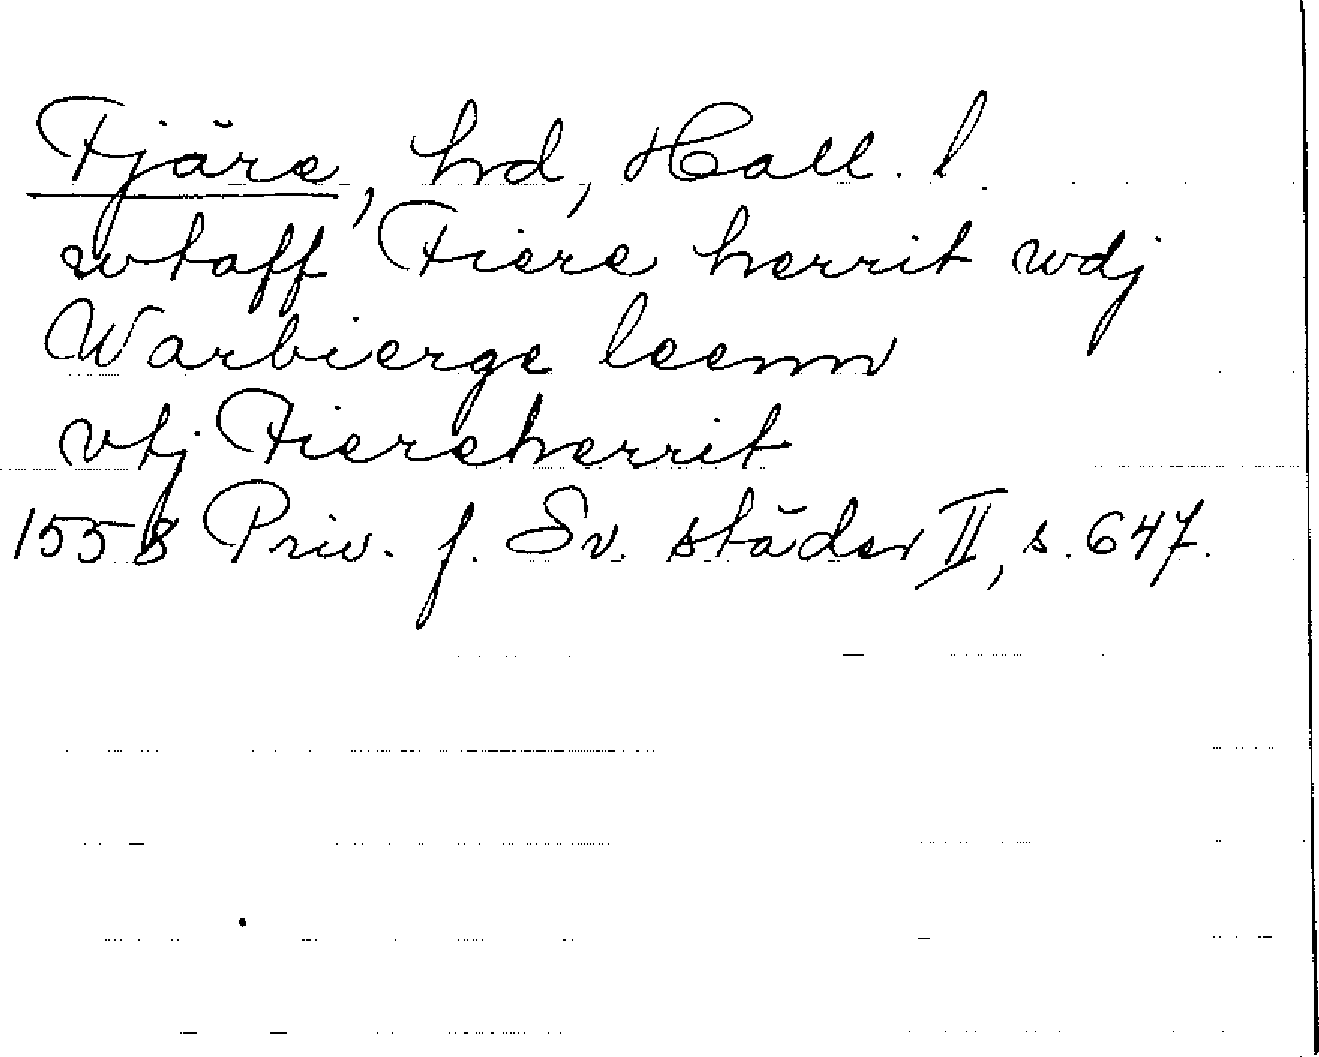 Fjäre, hrd, Hall. l.
wtaff Fiere herrit wdj
Warbierge leenn
vtj Fiereherrit
1558 Priv. f. Sv. städer II, s. 647.